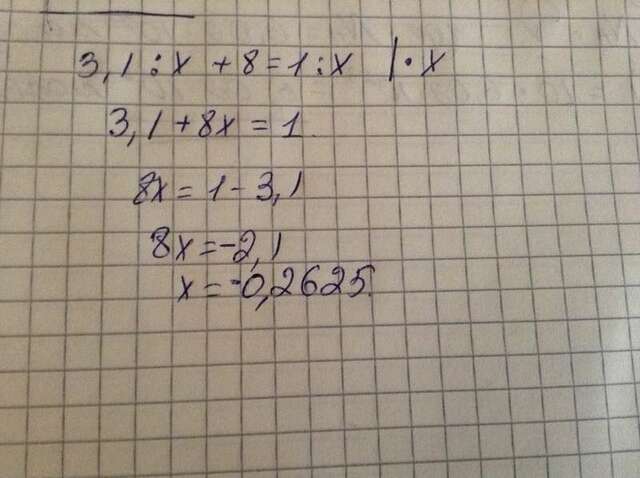 3,1 : x + 8 = 1 : x | · x
3,1 + 8x = 1.
8x = 1 - 3,1
8x = -2,1
x = -0,2625.